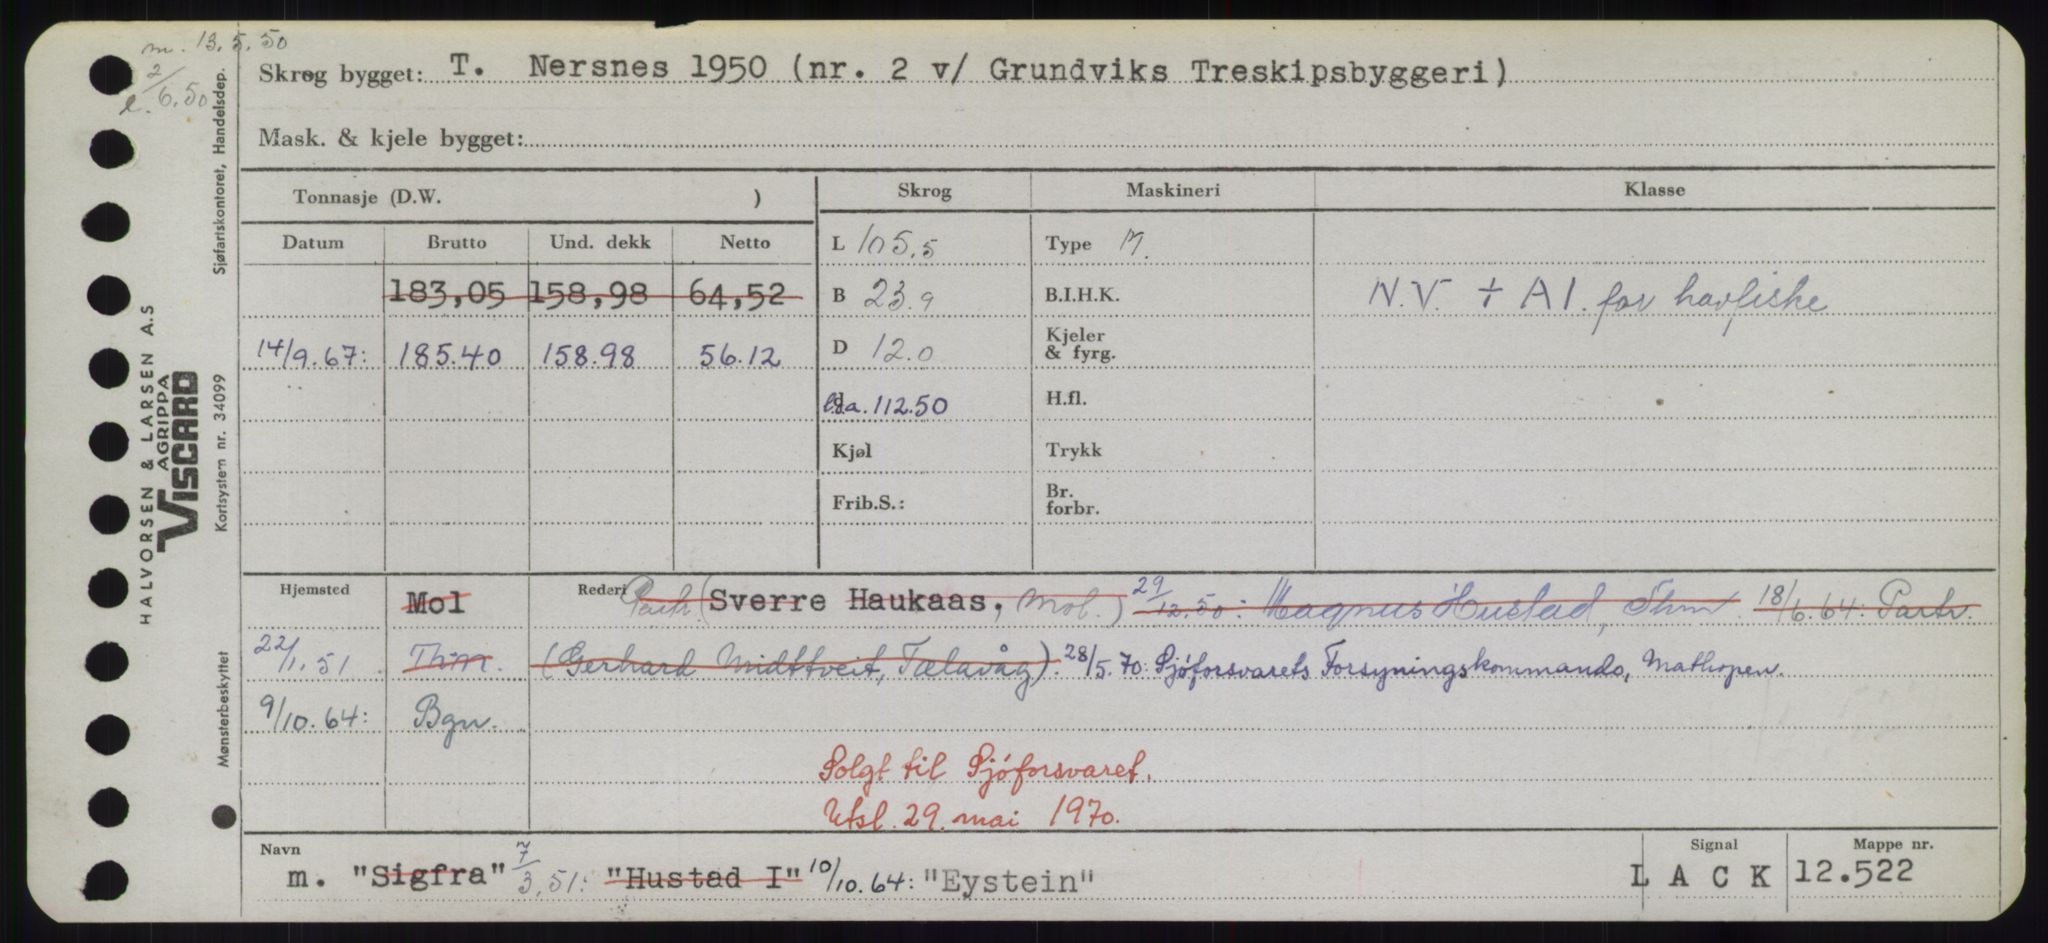 m. 13.5.50
l. 2/6.50
Skrog bygget: T. Nersnes 1950 (nr. 2 v/ Grundviks Treskipsbyggeri)
Mask. & kjele bygget:
Tonnasje (D.W. )
Skrog Maskineri Klasse
Datum Brutto Und. dekk Netto
L 105.5 Type M.
183,05 158,98 64,52
B 23.9 B.I.H.K. N.V. + A1. for havfiske
14/9.67: 185.40 158.98 56.12
D 12.0 Kjeler & fyrg.
l.o.a. 112.50 H.fl.
Kjøl Trykk
Frib.S.: Br. forbr.
Hjemsted Mol Rederi Partr. (Sverre Haukaas, Mol.) 29/12.50: Magnus Hustad, Thm. 18/6.64: Partr.
22/1.51 Thm. (Gerhard Midttveit, Tælavåg). 28/5.70: Sjøforsvarets Forsyningskommando, Mathopen.
9/10.64: Bgn.
Solgt til Sjøforsvaret.
Utsl. 29. mai 1970.
Navn Signal Mappe nr.
m. "Sigfra" 7/3.51: "Hustad I" 10/10.64: "Eystein" L A C K 12.522
Sjøfartskontoret, Handelsdep.
Kortsystem nr. 34099
Mønsterbeskyttet
HALVORSEN & LARSEN A.S
AGRIPPA
VISCARD